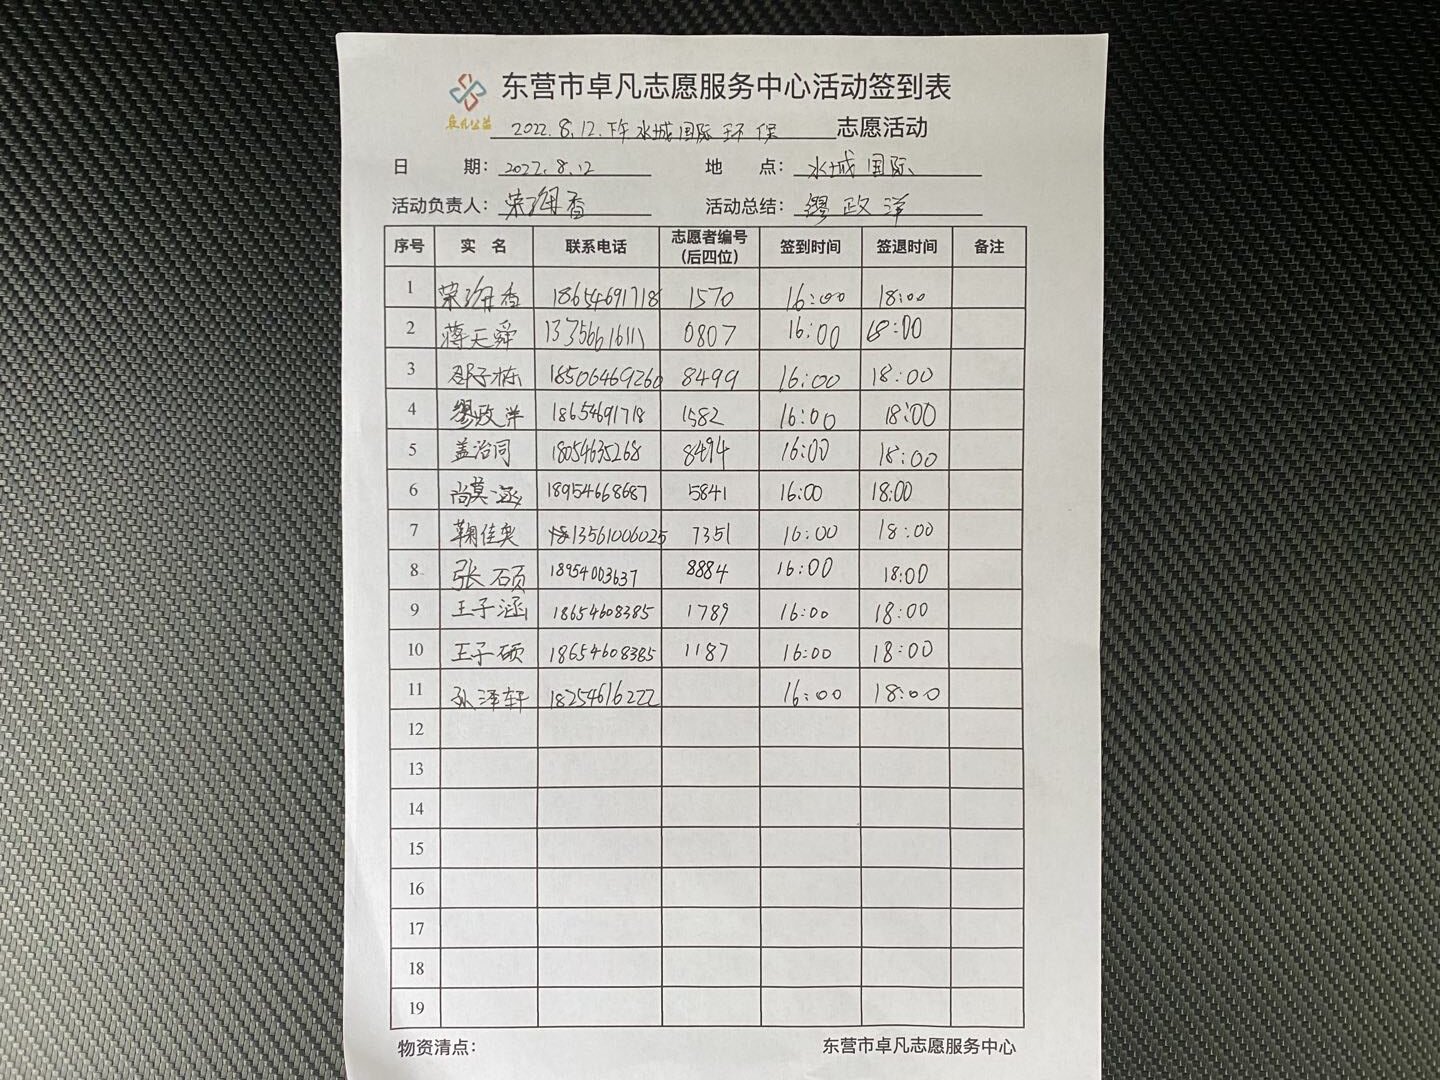 东营市卓凡志愿服务中心活动签到表
卓凡公益
2022.8.12.下午水城国际环保 志愿活动
日 期: 2022.8.12 地 点: 水城国际
活动负责人: 荣海香 活动总结: 缪政洋
序号 实 名 联系电话 志愿者编号 (后四位) 签到时间 签退时间 备注
1 荣海香 18654691718 1570 16:00 18:00
2 蒋天舜 13356616111 0807 16:00 18:00
3 邵子栋 18506469260 8499 16:00 18:00
4 缪政洋 18654691718 1582 16:00 18:00
5 盖治同 18054635268 8494 16:00 18:00
6 尚莫涵 18954668687 5841 16:00 18:00
7 鞠佳奥 13561006025 7351 16:00 18:00
8 张硕 18954003637 8884 16:00 18:00
9 王子涵 18654608385 1789 16:00 18:00
10 王子硕 18654608385 1187 16:00 18:00
11 孙泽轩 18254616222 16:00 18:00
12
13
14
15
16
17
18
19
物资清点: 东营市卓凡志愿服务中心